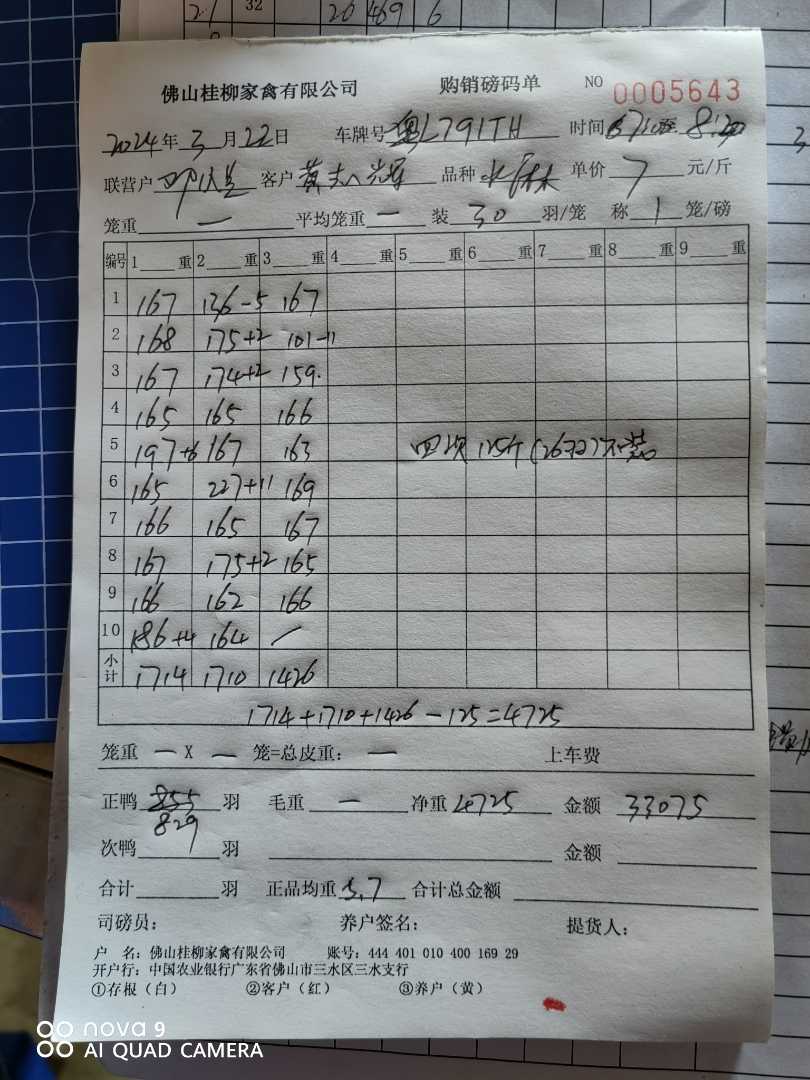 21 32 20 469 6
佛山桂柳家禽有限公司 购销磅码单 NO 0005643
2024年3月22日 车牌号粤L791TH 时间
联营户 客户黄 品种 单价7元/斤
笼重— 平均笼重— 装30羽/笼 称1笼/磅
编号 1 重 2 重 3 重 4 重 5 重 6 重 7 重 8 重 9 重
1 167 136-5 167
2 168 175+2 101-11
3 167 174+2 159.
4 165 165 166
5 197+6 167 163 四次125斤(26羽)不装
6 165 227+11 169
7 166 165 167
8 167 175+2 165
9 166 162 166
10 186+4 164 /
小计 1714 1710 1426
1714+1710+1426-125=4725
笼重—X—笼=总皮重:— 上车费
正鸭855羽 毛重— 净重4725 金额33075
829
次鸭 羽 金额
合计 羽 正品均重5.7 合计总金额
司磅员: 养户签名: 提货人:
户 名:佛山桂柳家禽有限公司 账号:444 401 010 400 169 29
开户行:中国农业银行广东省佛山市三水区三水支行
①存根(白) ②客户(红) ③养户(黄)
nova 9
AI QUAD CAMERA